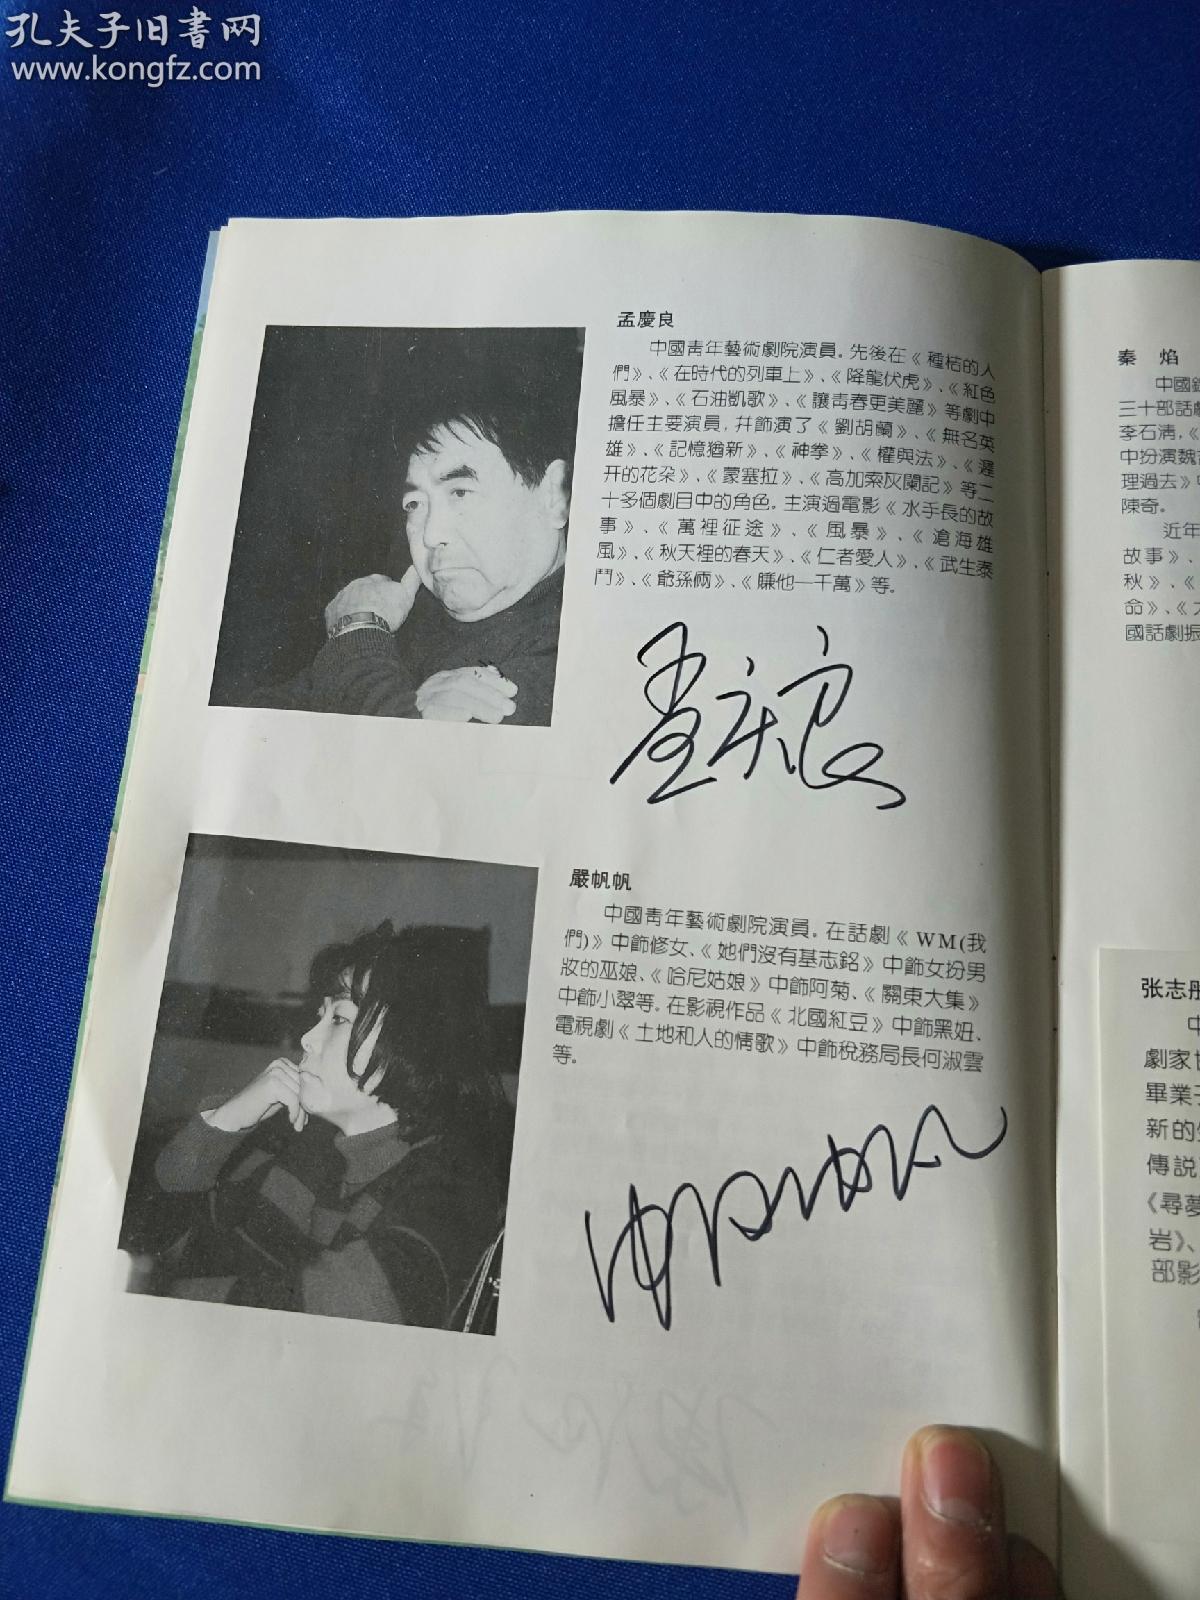 孔夫子旧書网
www.kongfz.com
孟慶良
中國青年藝術劇院演員。先後在《種桔的人
們》、《在時代的列車上》、《降龍伏虎》、《紅色
風暴》、《石油凱歌》、《讓青春更美麗》等劇中
擔任主要演員，并飾演了《劉胡蘭》、《無名英
雄》、《記憶猶新》、《神拳》、《權與法》、《遲
开的花朶》、《蒙塞拉》、《高加索灰闌記》等二
十多個劇目中的角色。主演過電影《水手長的故
事》、《萬裡征途》、《風暴》、《滄海雄
風》、《秋天裡的春天》、《仁者愛人》、《武生泰
鬥》、《爺孫倆》、《賺他一千萬》等。
孟庆良
嚴帆帆
中國青年藝術劇院演員。在話劇《WM(我
們)》中飾修女、《她們沒有基志銘》中飾女扮男
妝的巫娘、《哈尼姑娘》中飾阿菊、《關東大集》
中飾小翠等。在影視作品《北國紅豆》中飾黑妞、
電視劇《土地和人的情歌》中飾稅務局長何淑雲
等。
秦焰
中國鐵
三十部話劇
李石清，《
中扮演魏
理過去》中
陳奇。
近年
故事》、
秋》、《
命》、《
國話劇振
张志彤
中
劇家
畢業于
新的
傳説
《尋夢
岩》、
部影